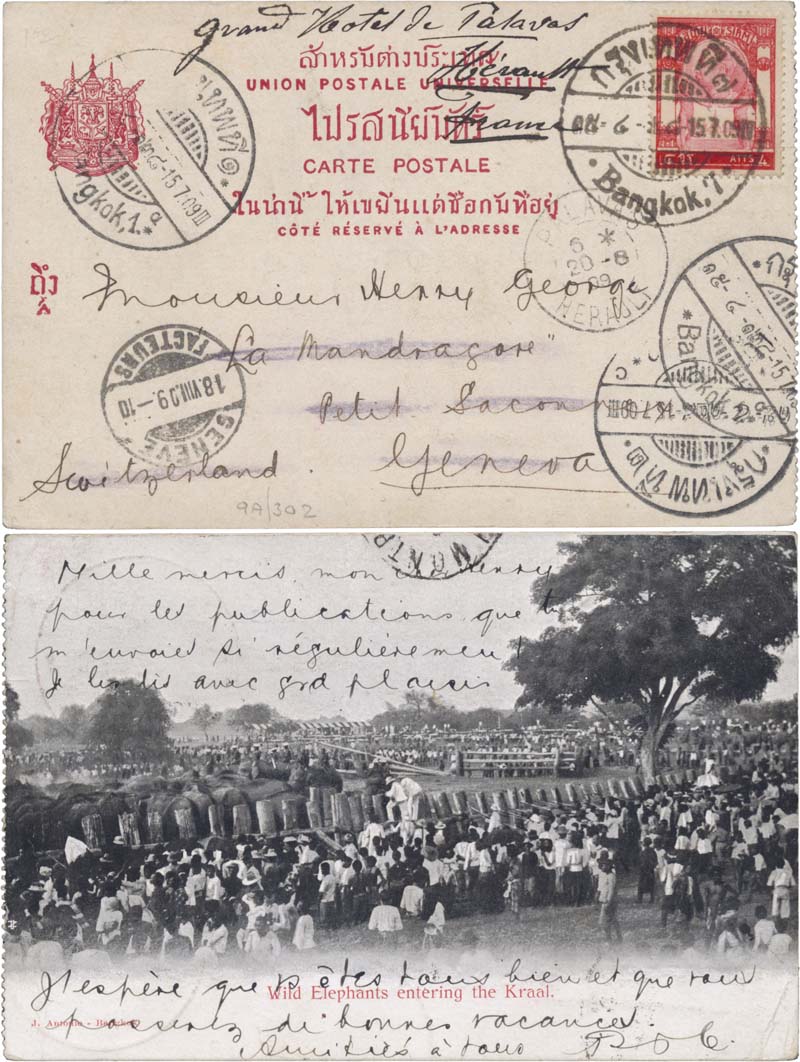 Grand Hotel de Palavas
Hérault
France
สำหรับต่างประเทศ
UNION POSTALE UNIVERSELLE
ไปรสนียบัตร
CARTE POSTALE
ในน่านี้ ให้เขียนแต่ชื่อกับที่อยู่
CÔTÉ RÉSERVÉ À L'ADRESSE
กรุงเทพที่ ๗
15.7.09
Bangkok, 7
Bangkok, 1.
15.7.09
PALAVAS
6 *
20 - 8
09
HERAULT
ถึง
À
Monsieur Henry George
"La Mandragore"
Petit Sacon
Geneva
Switzerland.
GENEVE
18.VIII.09.-10
FACTEURS
Bangkok
กรุงเทพที่
9A/302
Mille mercis, mon cher Henry
pour les publications que tu
m'envoies si régulièrement
Je les lis avec grd plaisir
J'espère que vs êtes tous bien et que vous
Wild Elephants entering the Kraal.
J. Antonio - Bangkok
passerez de bonnes vacances.
Amitiés à tous